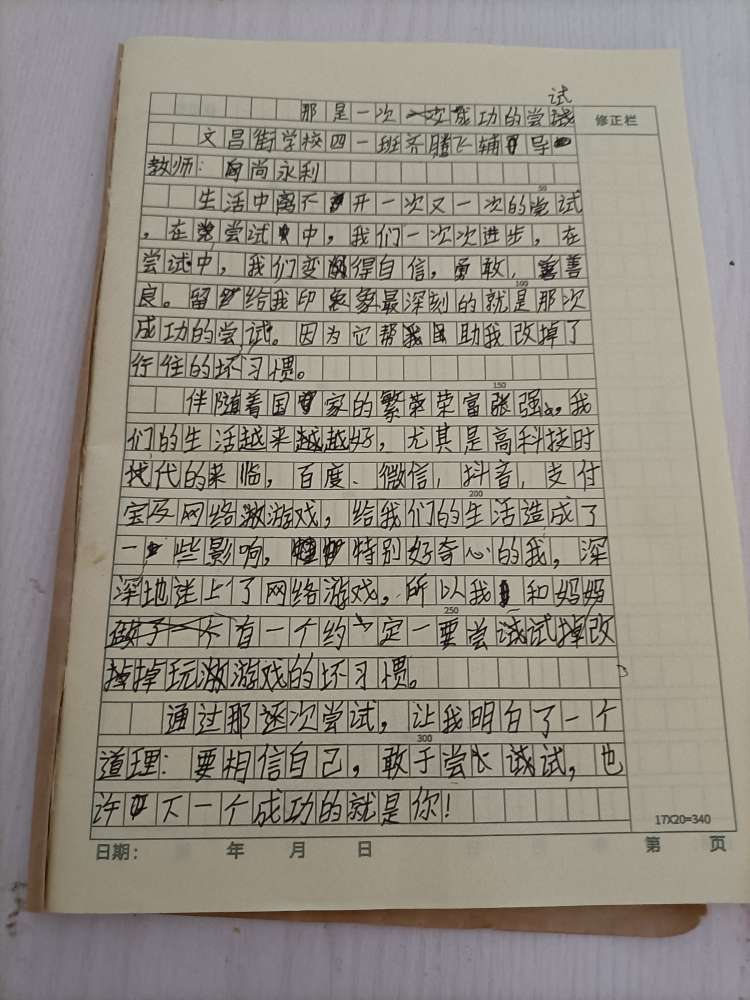 那是一次成功的尝试
修正栏
文昌街学校四一班齐腾飞辅导
教师：尚永利
生活中离不开一次又一次的尝试
50
，在尝试中，我们一次次进步，在
尝试中，我们变得自信，勇敢，善
100
良。留给我印象最深刻的就是那次
成功的尝试。因为它帮助我改掉了
行住的坏习惯。
150
伴随着国家的繁荣富强，我
们的生活越来越好，尤其是高科技时
代的来临，百度、微信，抖音，支付
200
宝及网络游戏，给我们的生活造成了
一些影响，特别好奇心的我，深
深地迷上了网络游戏，所以我和妈妈
250
有一个约定一要尝试掉改
掉玩游戏的坏习惯。
通过那次尝试，让我明白了一个
300
道理：要相信自己，敢于尝试，也
许下一个成功的就是你！
17X20=340
日期： 年 月 日 第 页